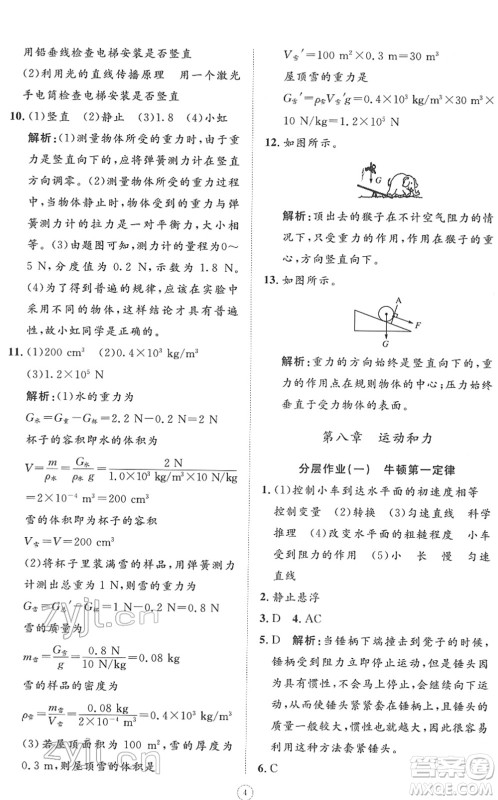 用铅垂线检查电梯安装是否竖直
(2)利用光的直线传播原理　用一个激光
手电筒检查电梯安装是否竖直
10. (1)竖直　(2)静止　(3)1.8　(4)小虹
解析:(1)测量物体所受的重力时,由于重
力是竖直向下的,应将弹簧测力计在竖直
方向调零。(2)测量物体所受的重力过程
中,当物体静止时,物体受到的重力与弹
簧测力计的拉力是一对平衡力,大小相
等。(3)由题图可知,测力计的量程为0～
5 N,分度值为 0.2 N,示数为 1.8 N。
(4)为了得到普遍的规律,该实验应采用
不同的物体,这样结论才具有普遍性,故
小虹同学是正确的。
11. (1)200 cm³　(2)0.4×10³ kg/m³
(3)1.2×10⁵ N
解析:(1)水的重力为
G水=G总－G杯=2.2 N－0.2 N=2 N
杯子的容积为
V=m/ρ水=G水/ρ水g=2 N/1.0×10³ kg/m³×10 N/kg
=2×10⁻⁴ m³=200 cm³
雪的体积等于杯子的容积
V雪=V=200 cm³
(2)将杯子里装满雪的重力,用弹簧测力
计测出总重为 1 N,雪的重力
G雪=G总′－G杯=1 N－0.2 N=0.8 N
雪的质量为
m雪=G雪/g=0.8 N/10 N/kg=0.08 kg
雪的样品的密度为
ρ雪=m雪/V雪=0.08 kg/2×10⁻⁴ m³=0.4×10³ kg/m³
(3)若屋顶面积为 100 m²,雪的厚度为
0.3 m,则屋顶雪的体积是
V雪′=100 m²×0.3 m=30 m³
屋顶雪的重力
G雪′=ρ雪V雪′g=0.4×10³ kg/m³×30 m³×
10 N/kg=1.2×10⁵ N
12. 如图所示。
G
解析:顶出去的猴子在不计空气阻力的情
况下,只受到重力的作用,猴子受到的重
力方向竖直向下。
13. 如图所示。
A
F
G
解析:重力的方向始终是竖直向下的,重
力作用点在规则物体的中心;压力始终是
垂直于受力物体的表面。
第八章　运动和力
分层作业(一)　牛顿第一定律
1. (1)控制小车到达水平面的初速度相等
控制变量　(2)转换　(3)匀速直线　科学
推理　(4)改变水平面的粗糙程度　小车
受到阻力的作用　(5)小　长　慢　匀速
直线
2. 静止悬浮
3. D　4. AC
5. D　解析:当锤柄下端撞击到凳子的时候,
锤柄受到阻力停止了运动,但是锤头因为
惯性还会继续向下运动。由于锤头的质
量一般较大,惯性也较大,所以很容易利
用这种方法套紧锤头。
6. C
4
zyjl.cn
zyjl.cn
作业精灵
作业精灵
MXQE.COM